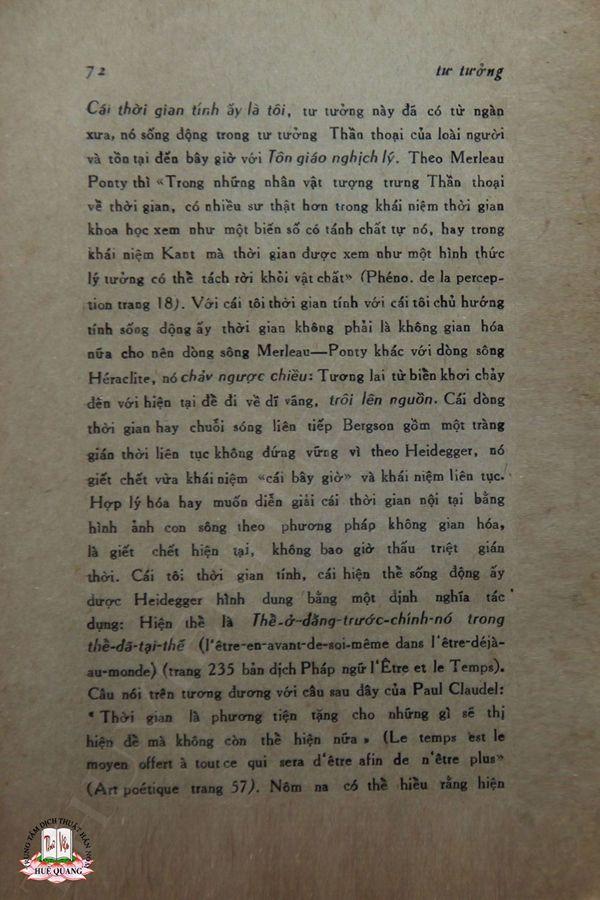 72 tư tưởng
Cái thời gian tính ấy là tôi, tư tưởng này đã có từ ngàn
xưa, nó sống động trong tư tưởng Thần thoại của loài người
và tồn tại đến bây giờ với Tôn giáo nghịch lý. Theo Merleau
Ponty thì «Trong những nhân vật tượng trưng Thần thoại
về thời gian, có nhiều sư thật hơn trong khái niệm thời gian
khoa học xem như một biến số có tánh chất tự nó, hay trong
khái niệm Kant mà thời gian được xem như một hình thức
lý tưởng có thể tách rời khỏi vật chất» (Phéno. de la percep-
tion trang 18). Với cái tôi thời gian tính với cái tôi chủ hướng
tính sống động ấy thời gian không phải là không gian hóa
nữa cho nên dòng sông Merleau—Ponty khác với dòng sông
Héraclite, nó chảy ngược chiều: Tương lai từ biển khơi chảy
đến với hiện tại để đi về dĩ vãng, trôi lên nguồn. Cái dòng
thời gian hay chuỗi sóng liên tiếp Bergson gồm một tràng
gián thời liên tục không đứng vững vì theo Heidegger, nó
giết chết vừa khái niệm «cái bây giờ» và khái niệm liên tục.
Hợp lý hóa hay muốn diễn giải cái thời gian nội tại bằng
hình ảnh con sông theo phương pháp không gian hóa,
là giết chết hiện tại, không bao giờ thấu triệt gián
thời. Cái tôi thời gian tính, cái hiện thể sống động ấy
được Heidegger hình dung bằng một định nghĩa tác
dụng: Hiện thể là Thể-ở-đằng-trước-chính-nó trong
thể-đã-tại-thế (l'être-en-avant-de-soi-même dans l'être-déjà-
au-monde) (trang 235 bản dịch Pháp ngữ l'Être et le Temps).
Câu nói trên tương đương với câu sau đây của Paul Claudel:
“Thời gian là phương tiện tặng cho những gì sẽ thị
hiện để mà không còn thể hiện nữa» (Le temps est le
moyen offert à tout ce qui sera d'être afin de n'être plus»
(Art poétique trang 57). Nôm na có thể hiểu rằng hiện
TRUNG TÂM DỊCH THUẬT HÁN NÔM
HUỆ QUANG